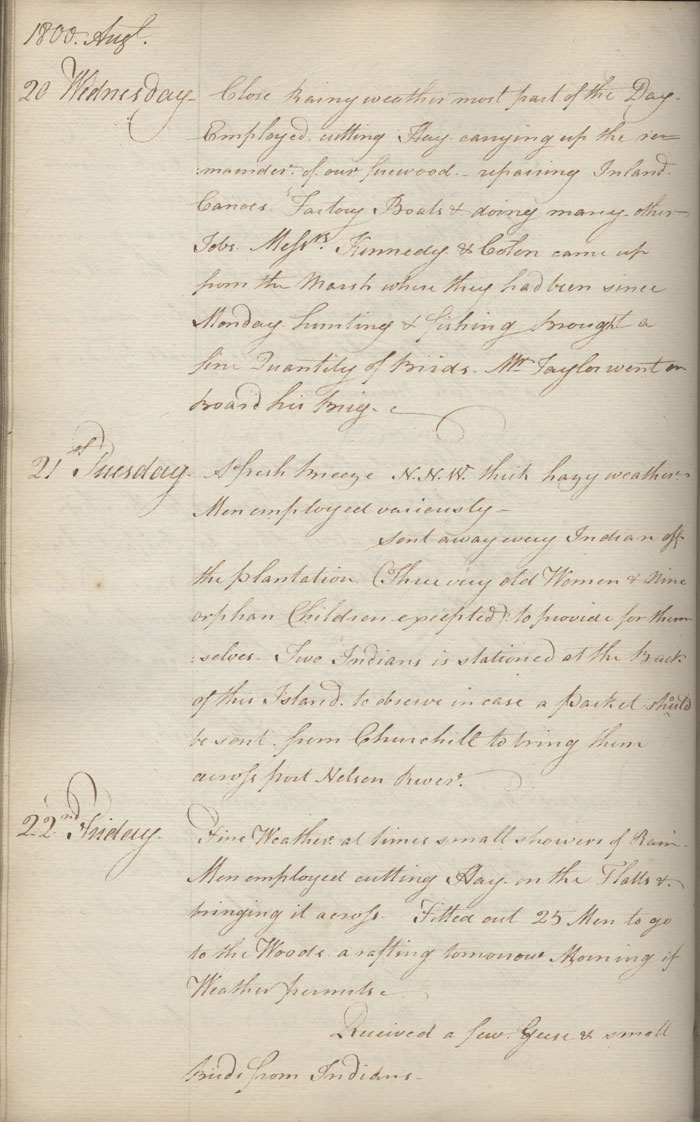 1800. Augt.
20 Wednesday. Close Rainy weather most part of the Day.
Employed cutting Hay carrying up the re=
=mainder of our firewood – repairing Inland
Canoes Factory Boats & doing many other
Jobs. Messrs. Kennedy & Colen came up
from the Marsh where they had been since
Monday hunting & fishing brought a
fine Quantity of Birds. Mr. Taylor went on
Board his Brig.
21st Tuesday. A fresh Breeze N.N.W. thick hazy weather
Men employed variously –
Sent away every Indian off
the plantation (Three very old Women & Nine
orphan Children excepted) to provide for them
=selves. Two Indians is stationed at the Back
of this Island to observe in case a packet should
be sent from Churchill to bring them
across port Nelson River.
22nd Friday. Fine Weather at times small showers of Rain
Men employed cutting Hay on the Flatts &
bringing it across. Fitted out 25 Men to go
to the Woods a rafting tomorrow Morning if
Weather permits.
Received a few Geese & small
Birds from Indians.